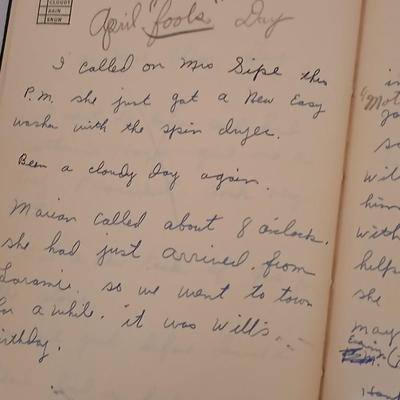 CLOUDY
RAIN
SNOW
April "fools" Day
I called on Mrs Sipe this
P.M. she just got a New Easy
washer with the spin dryer.
Been a cloudy day again.
Marian called about 8 o'clock.
she had just arrived from
Laramie. so we went to town
for a while. it was Will's
irthday.
in
"Mot
so
wil
him
with
helps
she
may